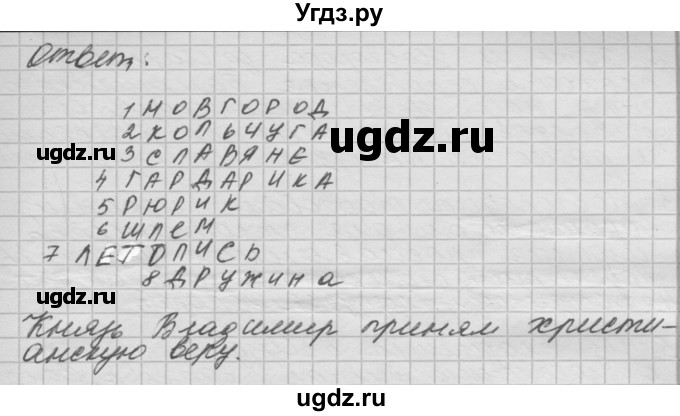 Угдз.ру
Ответ:
1 НОВГОРОД
2 КОЛЬЧУГА
ugdz.ru
ugdz.ru
3 СЛАВЯНЕ
4 ГАРДАРИКА
5 РЮРИК
6 ШЛЕМ
7 ЛЕТОПИСЬ
8 ДРУЖИНА
ugdz.ru
Князь Владимир принял христи-
анскую веру.
ugdz.ru
ugdz.ru